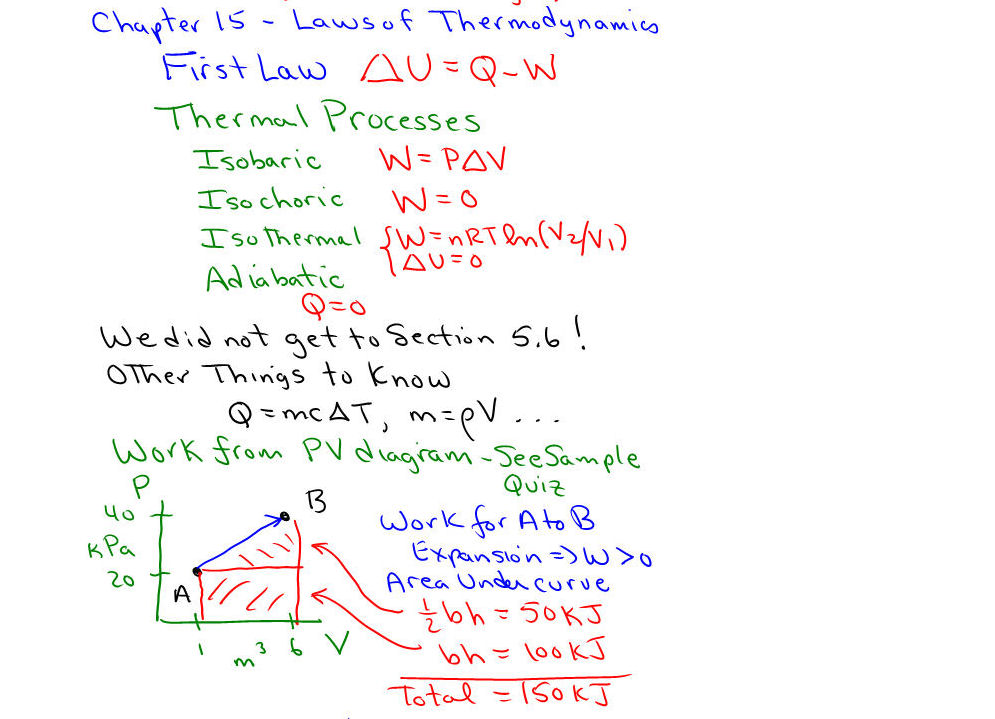 Chapter 15 - Laws of Thermodynamics
First Law ΔU = Q - W
Thermal Processes
Isobaric W = PΔV
Isochoric W = 0
Isothermal { W = nRT ln(V₂/V₁)
ΔU = 0
Adiabatic
Q = 0
We did not get to Section 5.6!
Other Things to Know
Q = mcΔT, m = ρV ...
Work from PV diagram - See Sample
Quiz
P
40
kPa
20
A
B
1
m³
6
V
Work for A to B
Expansion => W > 0
Area Under curve
½bh = 50 KJ
bh = 100 KJ
Total = 150 KJ